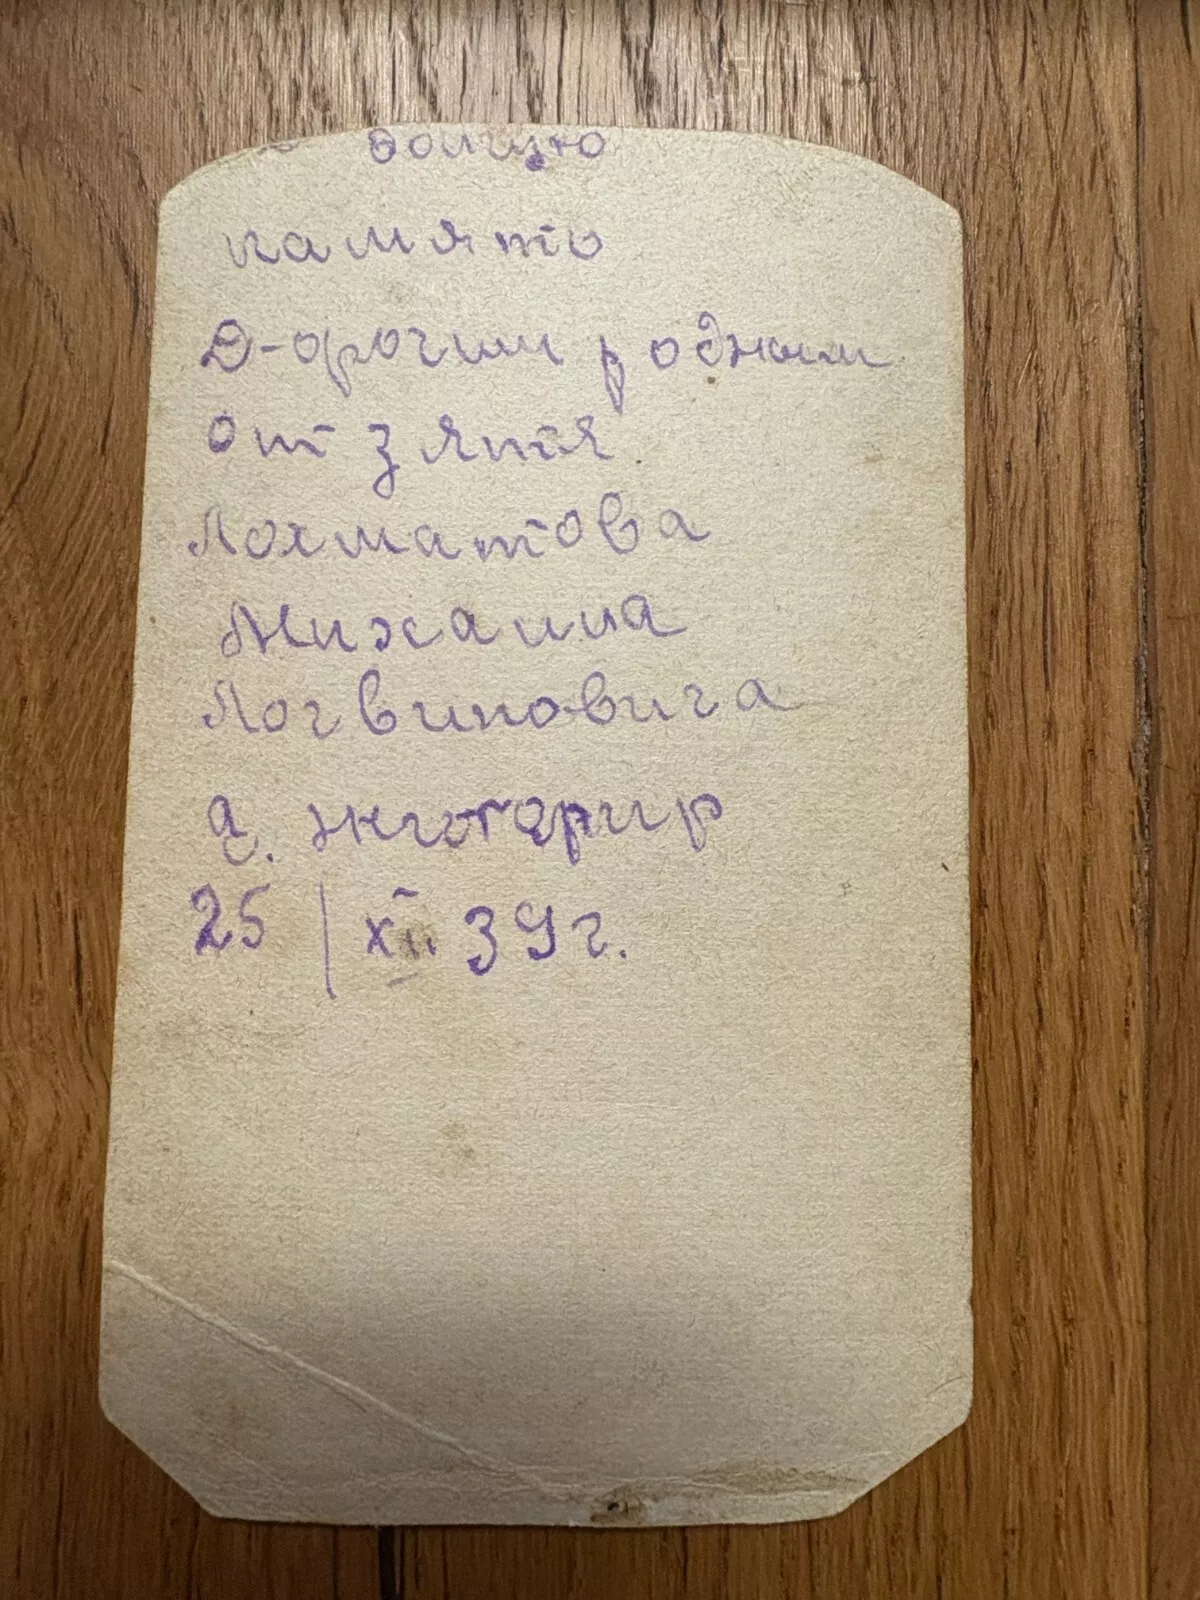 долгую
память
Д-орогим родным
От зятя
Лохматова
Михаила
Логвиновича
г. житорир
25 / XII 39 г.